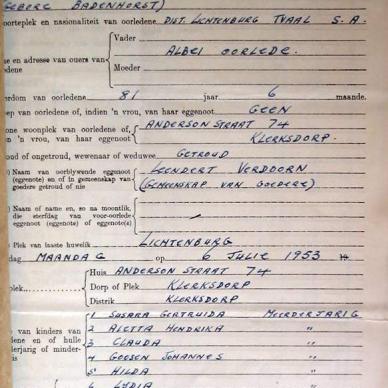 GEBORE BADENHORST)
oorteplek en nasionaliteit van oorledene. DIST. LICHTENBURG TVAAL S.A.
Vader
se en adresse van ouers van
edene
ALBEI OORLEDE.
Moeder
erdom van oorledene 81 jaar 6 maande.
ep van oorledene of, indien 'n vrou, van haar eggenoot GEEN
one woonplek van oorledene of,
en 'n vrou, van haar eggenoot
ANDERSON STRAAT 74
KLERKSDORP.
oud of ongetroud, wewenaar of weduwee GETROUD
) Naam van oorblywende eggenoot
(eggenote) en of in gemeenskap van
goedere getroud of nie
LEENDERT VERDOORN
(GEMEENSKAP VAN GOEDERE)
) Naam of name en, so na moontlik,
die sterfdag van voor-oorlede-
eggenoot (eggenote) of eggenote(s)
) Plek van laaste huwelik LICHTENBURG
dag MAANDAG op 6 JULIE 1953 19
Huis ANDERSON STRAAT 74
plek Dorp of Plek KLERKSDORP
Distrik KLERKSDORP
e van kinders van
dene en of hulle
derjarig of minder-
is
1 SUSARA GERTRUIDA MEERDERJARIG
2 ALETTA HENDRIKA "
3 CLAUDA "
4 GOOSEN JOHANNES "
5 HILDA "
6 LYDIA "